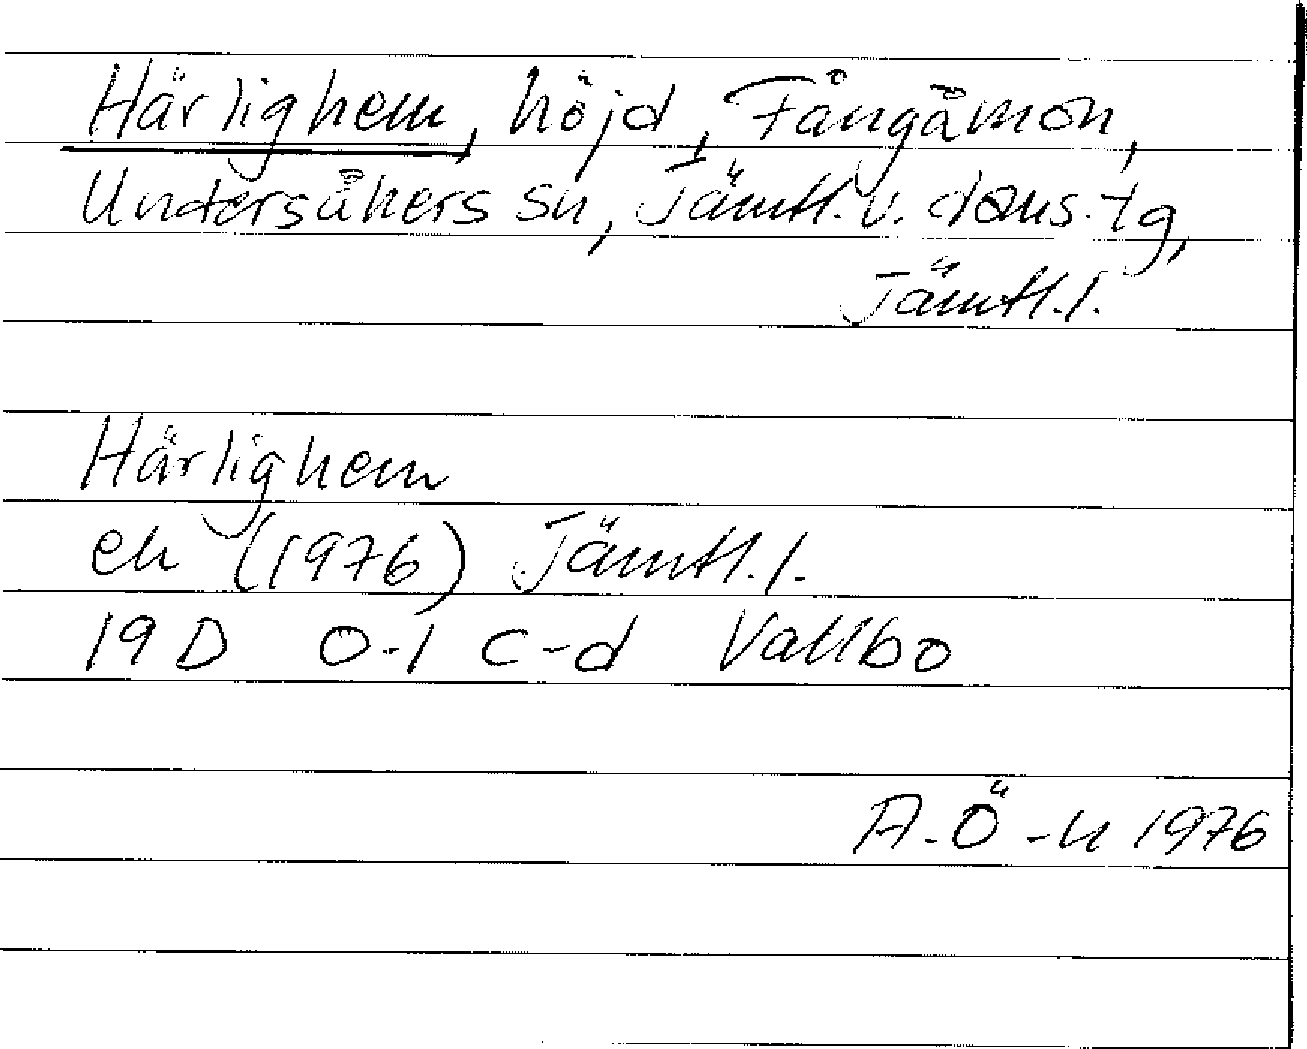 Härlighem, höjd, Fångåmon,
Undersåkers sn, Jämtl. v. doms. tg,
Jämtl. l.
Härlighem
ek (1976) Jämtl. l.
19 D 0-1 c-d Vallbo
A. Ö-n 1976